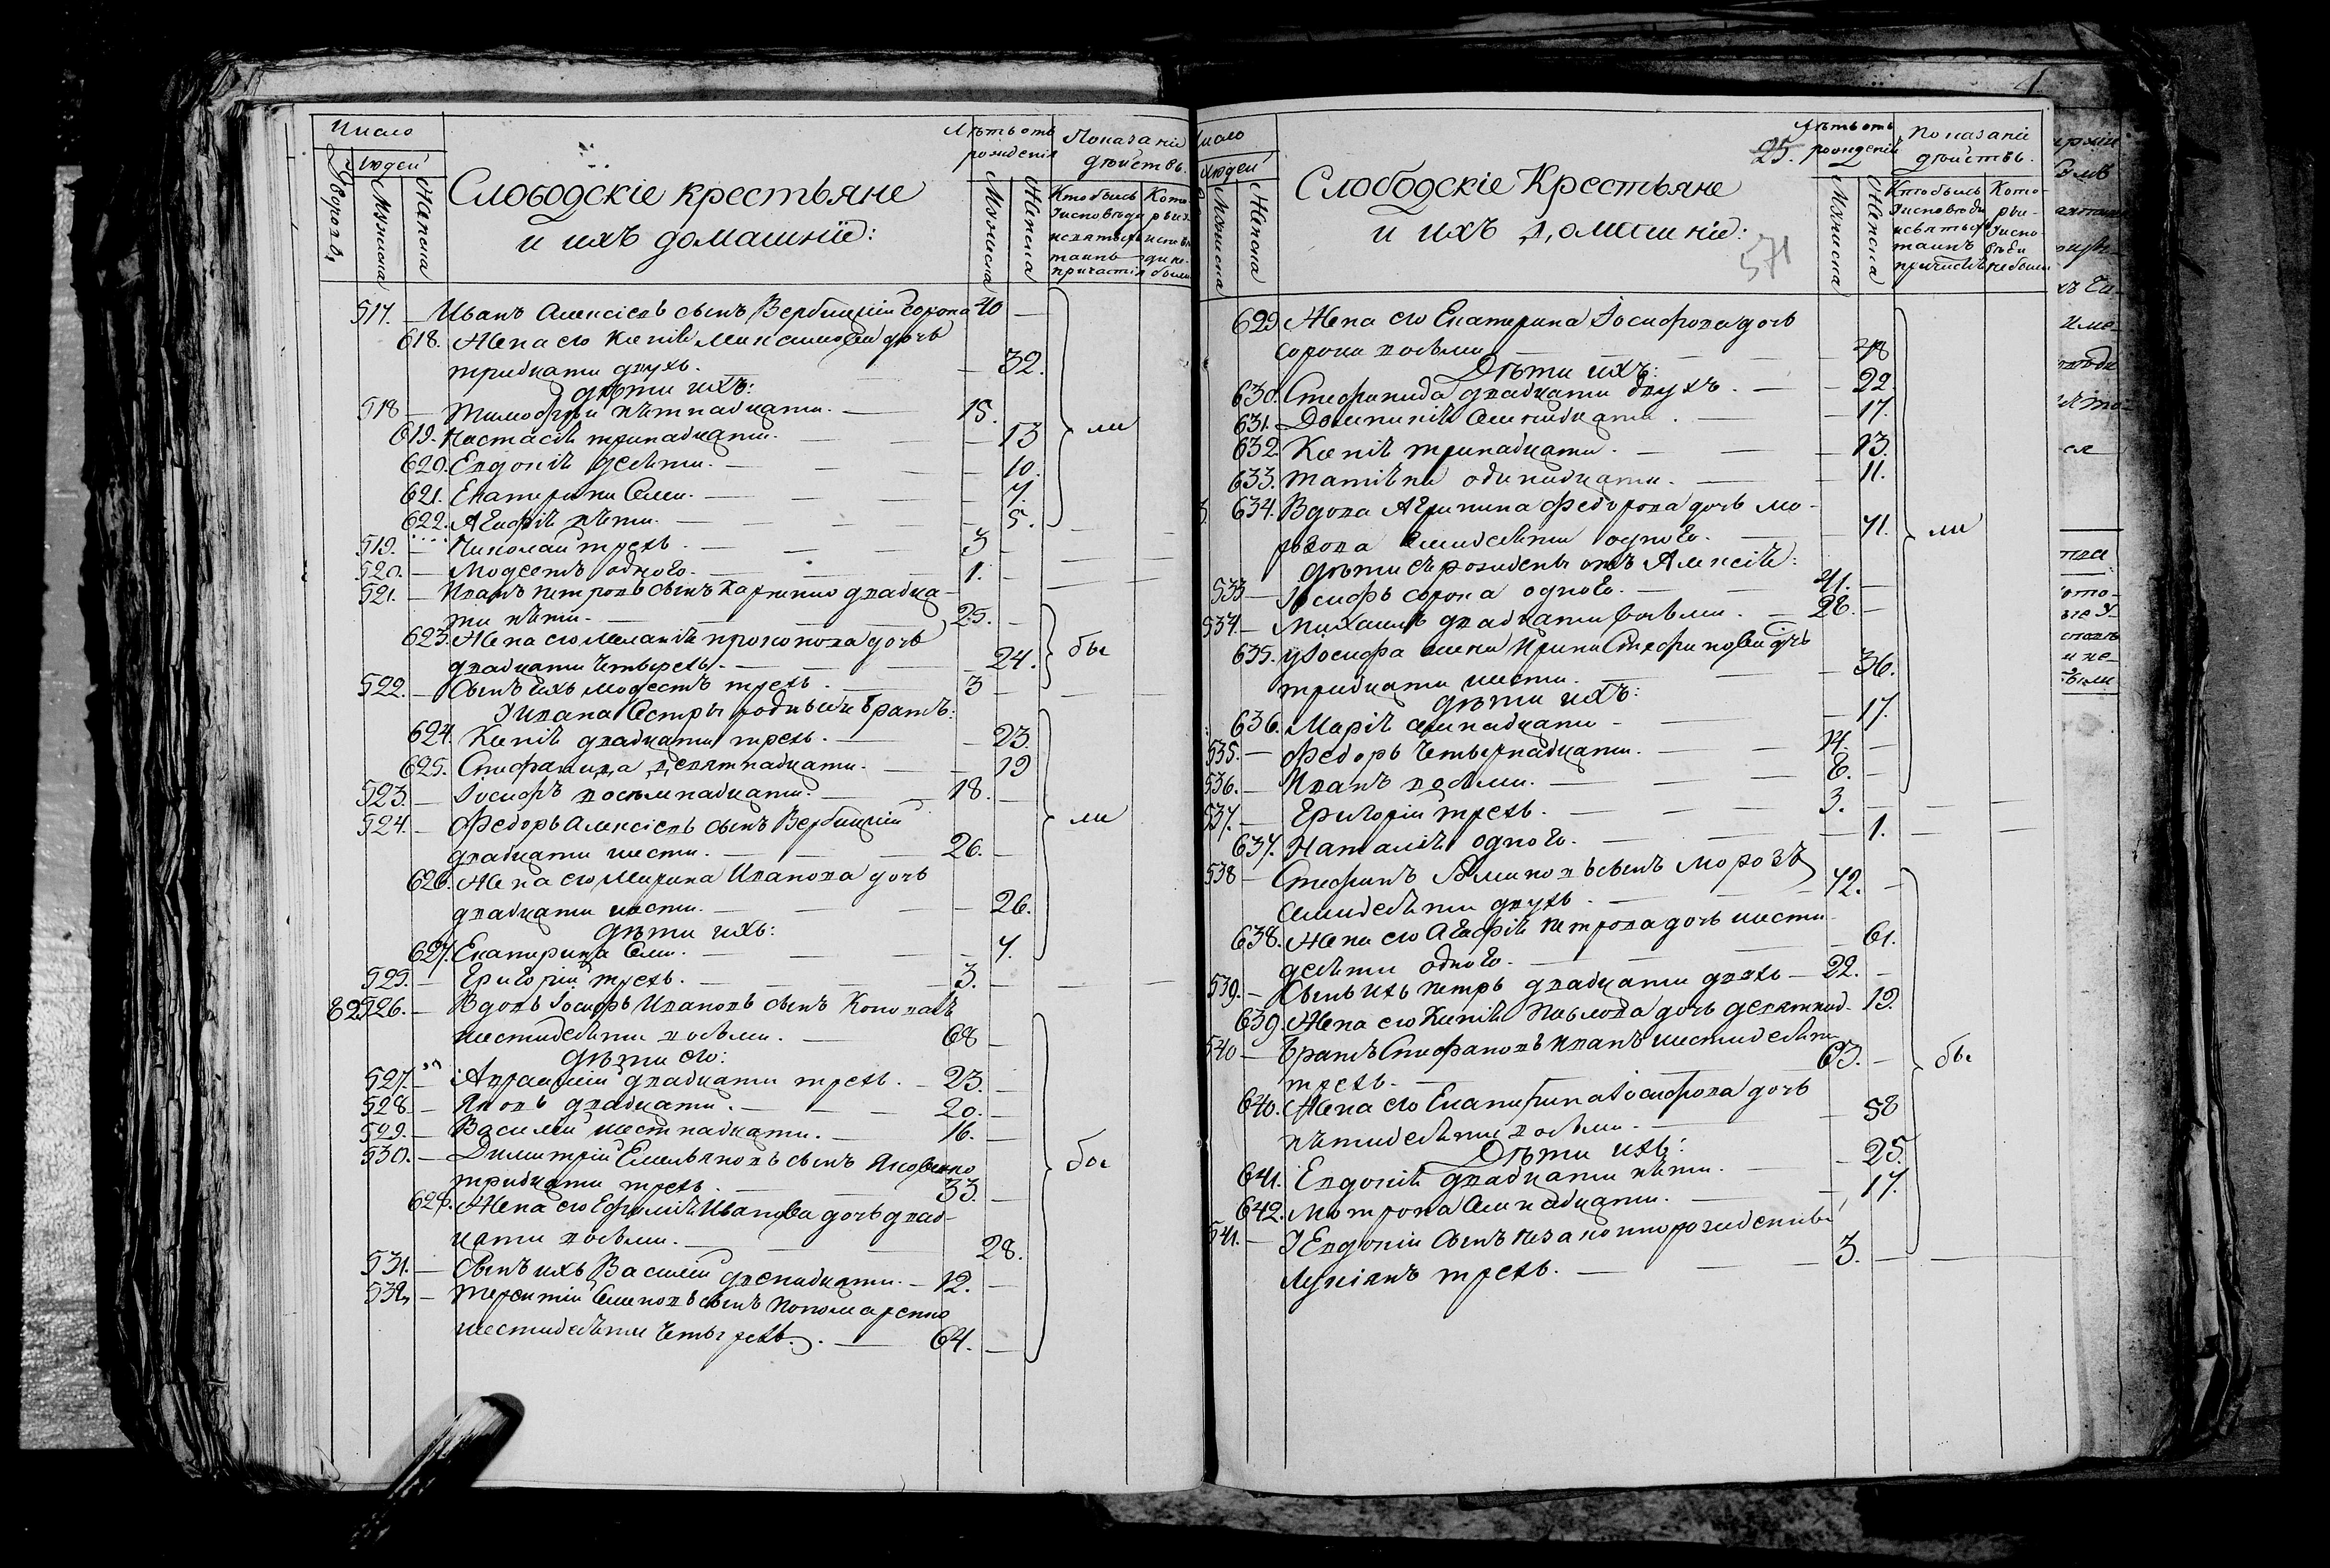 Число
Людей
Дворовъ
Мужеска
Женска
Слободскіе крестьяне
и ихъ домашніе:
Лѣтъ отъ
рожденія
Мужеска
Женска
Показаніе
дѣйствъ.
Кто былъ
Которые
517. — Иванъ Алексіевъ сынъ Вербицкій сорока 40 —
618. Жена его Ксенія Максимова дочь
тридцати двухъ. — 32.
Дѣти ихъ:
518 — Тимофей пятнадцати. — 15.
619. Настасія тринадцати. — 13
620. Евдокія десяти. — 10.
621. Екатерина семи. — 7.
622. Агафія пяти. — 5.
ли
519. — Николай трехъ. — 3 —
520. — Модестъ одного. — 1. —
521. — Иванъ Петровъ сынъ Карпенко двадца-
ти пяти. — 25. —
623. Жена его Меланія Прокопова дочь
двадцати четырехъ. — 24.
бы
522. — Сынъ ихъ Модестъ трехъ. — 3 —
У Ивана сестры родные и братъ:
624. Ксенія двадцати трехъ. — 23.
625. Стефанида девятнадцати. — 19
523. — Іосифъ восемнадцати. — 18. —
524. — Федоръ Алексіевъ сынъ Вербицкій
двадцати шести. — 26. —
ли
626. Жена его Марина Иванова дочь
двадцати шести. — 26.
Дѣти ихъ:
627. Екатерина семи. — 7.
525. — Григорій трехъ. — 3. —
526. — Вдовъ Іосифъ Ивановъ сынъ Коновалъ
шестидесяти восьми. — 68 —
Дѣти его:
527. — Авраамій двадцати трехъ. — 23. —
528 — Яковъ двадцати. — 20. —
529. — Василій шестнадцати. — 16. —
530. — Димитрій Емельяновъ сынъ Яковенко
тридцати трехъ. — 33. —
бы
628. Жена его Ефимія Иванова дочь двад-
цати восьми. — 28.
531. — Сынъ ихъ Василій двенадцати. — 12. —
532. — Терентій Семеновъ сынъ Пономаренко
шестидесяти четырехъ. — 64. —
Число
Людей
Мужеска
Женска
Слободскіе Крестьяне
и ихъ домашніе:
25.
571
Лѣтъ отъ
рожденій
Мужеска
Женска
Показаніе
дѣйствъ.
629. Жена его Екатерина Іосифова дочь
сорока восьми — 48
Дѣти ихъ:
630. Стефанида двадцати двухъ. — 22.
631. Домникія семнадцати. — 17.
632. Ксенія тринадцати. — 13.
633. Татіяна одинадцати. — 11.
634. Вдова Агрипина Федорова дочь Мо-
розова семидесяти одного. — 71.
ли
Дѣти съ рожденъ отъ Алексія:
533 — Іосифъ сорока одного. — 41. —
534. — Михаилъ двадцати восьми. — 28. —
635. У Іосифа жена Ирина Стефанова дочь
тридцати шести. — 36.
Дѣти ихъ:
636. Марія семнадцати — 17.
535. — Федоръ четырнадцати. — 14. —
536. — Иванъ восьми. — 8. —
537. — Григорій трехъ. — 3. —
637. Наталія одного. — 1.
538 — Стефанъ сынъ Морозъ
семидесяти двухъ. — 72. —
638. Жена его Агафія Петрова дочь шести-
десяти одного. — 61.
539. — Сынъ ихъ Петръ двадцати двухъ — 22. —
639. Жена его Ксенія Павлова дочь девятнад. 19.
540 — Братъ Стефановъ Иванъ шестидесяти
трехъ. — 63. —
бы
640. Жена его Екатерина Іосифова дочь
пятидесяти восьми. — 58
Дѣти ихъ:
641. Евдокія двадцати пяти. — 25.
642. Матрона семнадцати. — 17.
541. — У Евдокіи сынъ незаконнорожденный
Лукіянъ трехъ. — 3. —